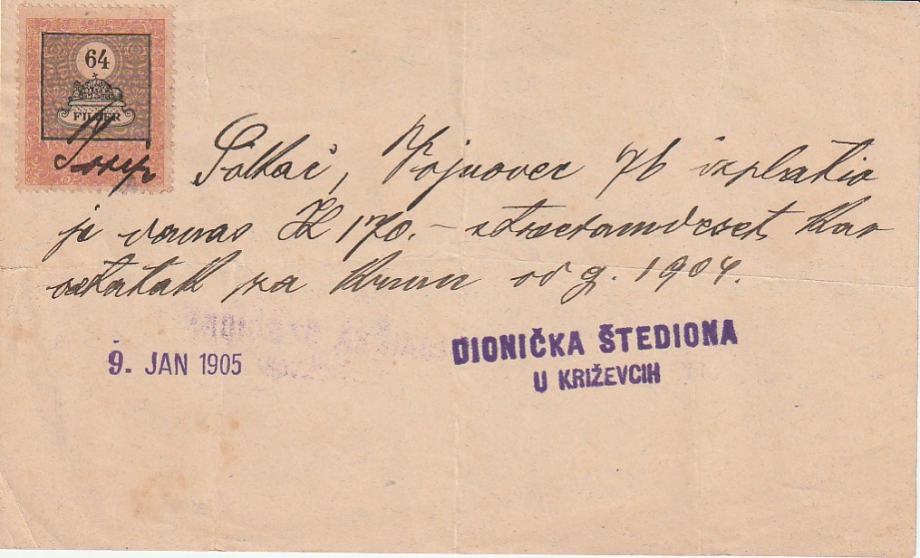 64
FILLER
Josip Soltar, Vojnovec 76 izplatio
je danas K 170.- stosedamdeset kao
ostatak za kravu od g. 1904.
9. JAN 1905
DIONIČKA ŠTEDIONA
U KRIŽEVCIH